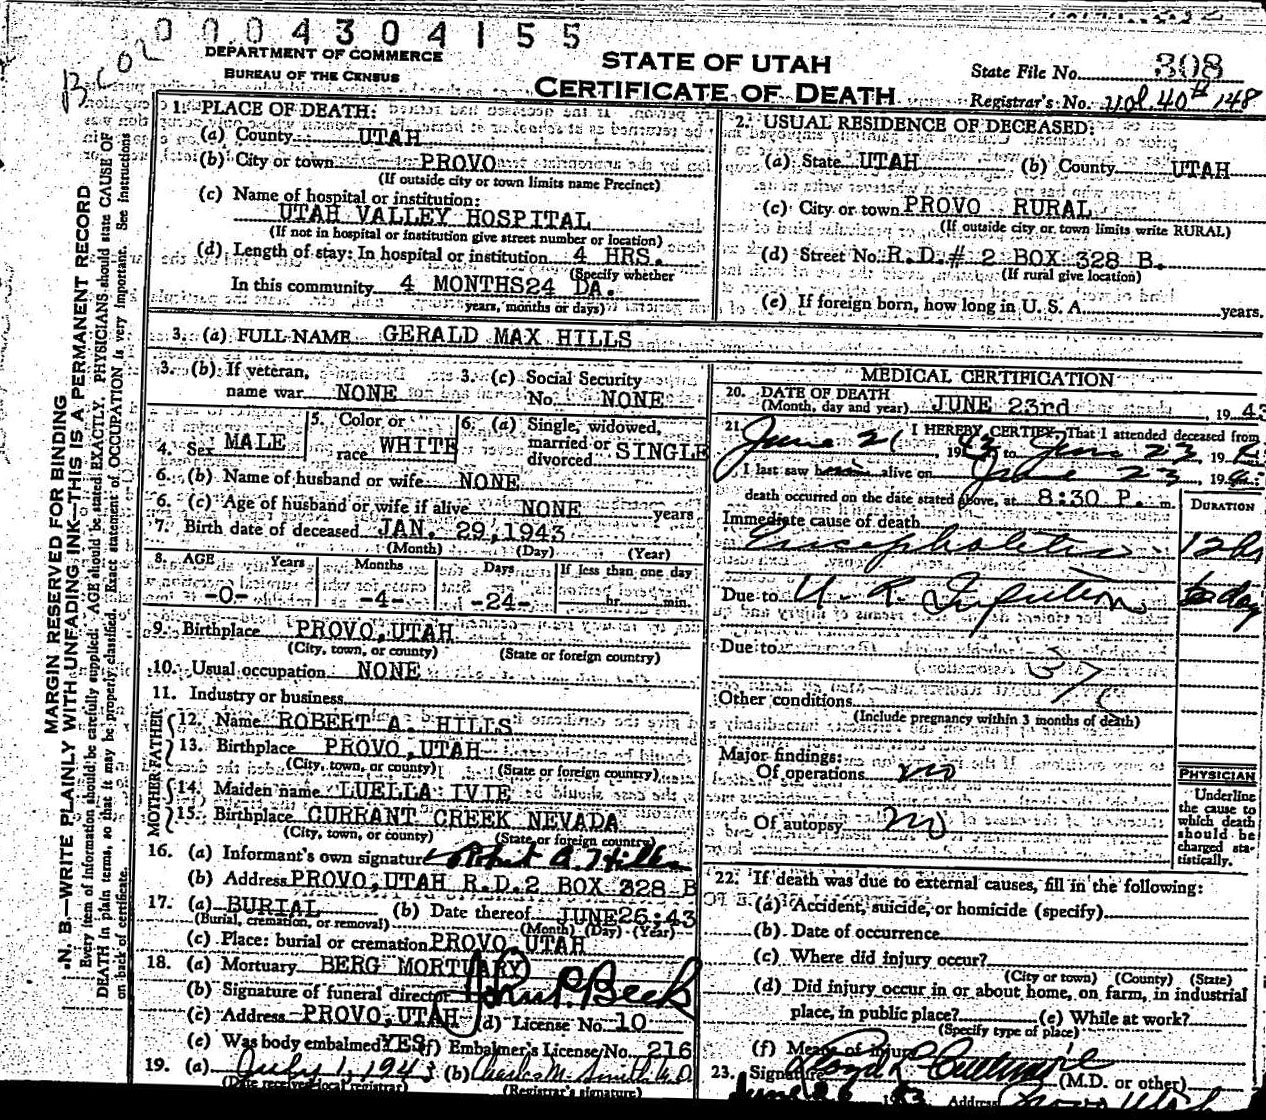 0004304155
DEPARTMENT OF COMMERCE
BUREAU OF THE CENSUS
STATE OF UTAH
CERTIFICATE OF DEATH
State File No. 308
Registrar's No. Vol. 40 # 148
MARGIN RESERVED FOR BINDING
N. B.—WRITE PLAINLY WITH UNFADING INK—THIS IS A PERMANENT RECORD
Every item of information should be carefully supplied. AGE should be stated EXACTLY. PHYSICIANS should state CAUSE OF
DEATH in plain terms, so that it may be properly classified. Exact statement of OCCUPATION is very important. See instructions
on back of certificate.
1. PLACE OF DEATH:
(a) County UTAH
(b) City or town PROVO
(If outside city or town limits name Precinct)
(c) Name of hospital or institution:
UTAH VALLEY HOSPITAL
(If not in hospital or institution give street number or location)
(d) Length of stay: In hospital or institution 4 HRS.
(Specify whether
In this community 4 MONTHS24 DA.
years, months or days)
2. USUAL RESIDENCE OF DECEASED:
(a) State UTAH (b) County UTAH
(c) City or town PROVO RURAL
(If outside city or town limits write RURAL)
(d) Street No. R.D.# 2 BOX 328 B.
(If rural give location)
(e) If foreign born, how long in U. S. A. years.
3. (a) FULL NAME GERALD MAX HILLS
3. (b) If veteran, name war NONE
3. (c) Social Security No. NONE
4. Sex MALE
5. Color or race WHITE
6. (a) Single, widowed, married or divorced SINGLE
6. (b) Name of husband or wife NONE
6. (c) Age of husband or wife if alive NONE years
7. Birth date of deceased JAN. 29,1943
(Month) (Day) (Year)
8. AGE Years Months Days If less than one day
-0- -4- -24- hr. min.
9. Birthplace PROVO,UTAH
(City, town, or county) (State or foreign country)
10. Usual occupation NONE
11. Industry or business
FATHER
12. Name ROBERT A. HILLS
13. Birthplace PROVO,UTAH
(City, town, or county) (State or foreign country)
MOTHER
14. Maiden name LUELLA IVIE
15. Birthplace CURRANT CREEK NEVADA
(City, town, or county) (State or foreign country)
16. (a) Informant's own signature Robert A. Hills
(b) Address PROVO,UTAH R.D.2 BOX 328 B
17. (a) BURIAL (b) Date thereof JUNE26:43
(Burial, cremation, or removal) (Month) (Day) (Year)
(c) Place: burial or cremation PROVO UTAH
18. (a) Mortuary BERG MORTUARY
(b) Signature of funeral director
(c) Address PROVO,UTAH (d) License No. 10
(e) Was body embalmed YES (f) Embalmer's License No. 216
19. (a) July 1, 1943 (b) Charles M. Smith M.D
(Date received local registrar) (Registrar's signature)
MEDICAL CERTIFICATION
20. DATE OF DEATH
(Month, day and year) JUNE 23rd, 1943
21. I HEREBY CERTIFY, That I attended deceased from
June 21, 1943 to June 23, 19
I last saw him alive on June 23, 19
death occurred on the date stated above, at 8:30 P. m.
DURATION
Immediate cause of death
Encephalitis 12 hrs
Due to U. R. Infection days
Due to
37
Other conditions
(Include pregnancy within 3 months of death)
Major findings:
Of operations no
Of autopsy no
PHYSICIAN
Underline
the cause to
which death
should be
charged sta-
tistically.
22. If death was due to external causes, fill in the following:
(a) Accident, suicide, or homicide (specify)
(b) Date of occurrence
(c) Where did injury occur?
(City or town) (County) (State)
(d) Did injury occur in or about home, on farm, in industrial
place, in public place? (e) While at work?
(Specify type of place)
(f) Means of injury
23. Signature (M.D. or other)
Address